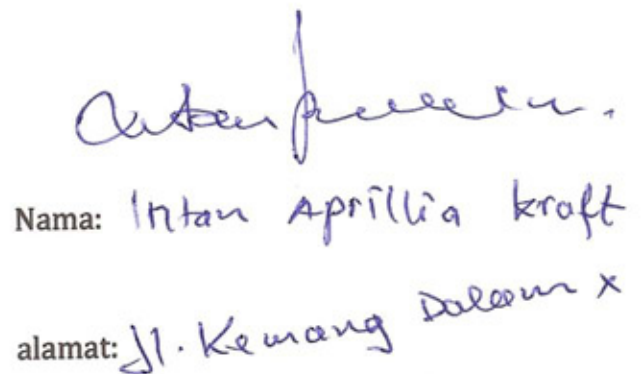 Nama: Intan Aprillia kraft
alamat: Jl. Kemang Dalam X